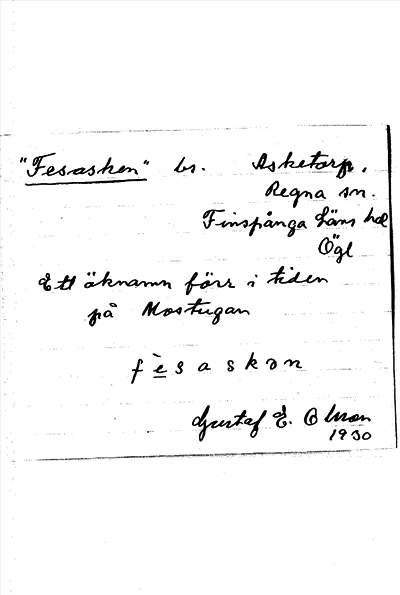 "Fesasken" bs. Asketorp,
Regna sn.
Finspånga läns hd
Ögl
Ett öknamn förr i tiden
på Mostugan
f è s a s k ə n
Gustaf E. Olson
1930